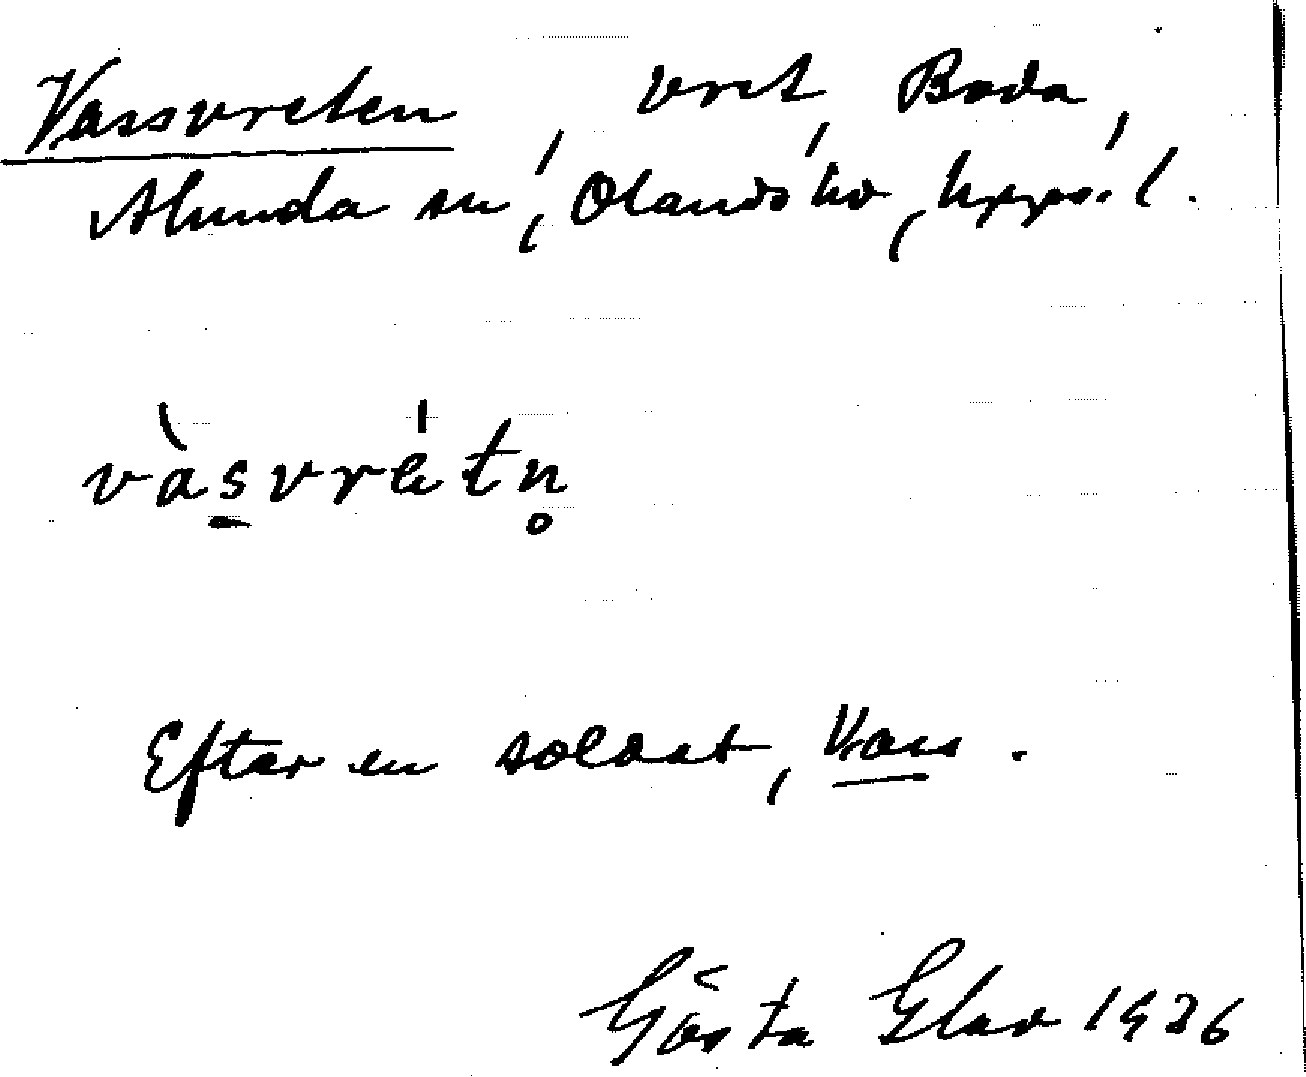 Vassvreten, vret, Boda,
Alunda sn, Olands hd, Upps. l.
vàsvrétn̥
Efter en soldat, Vass.
Gösta 1936